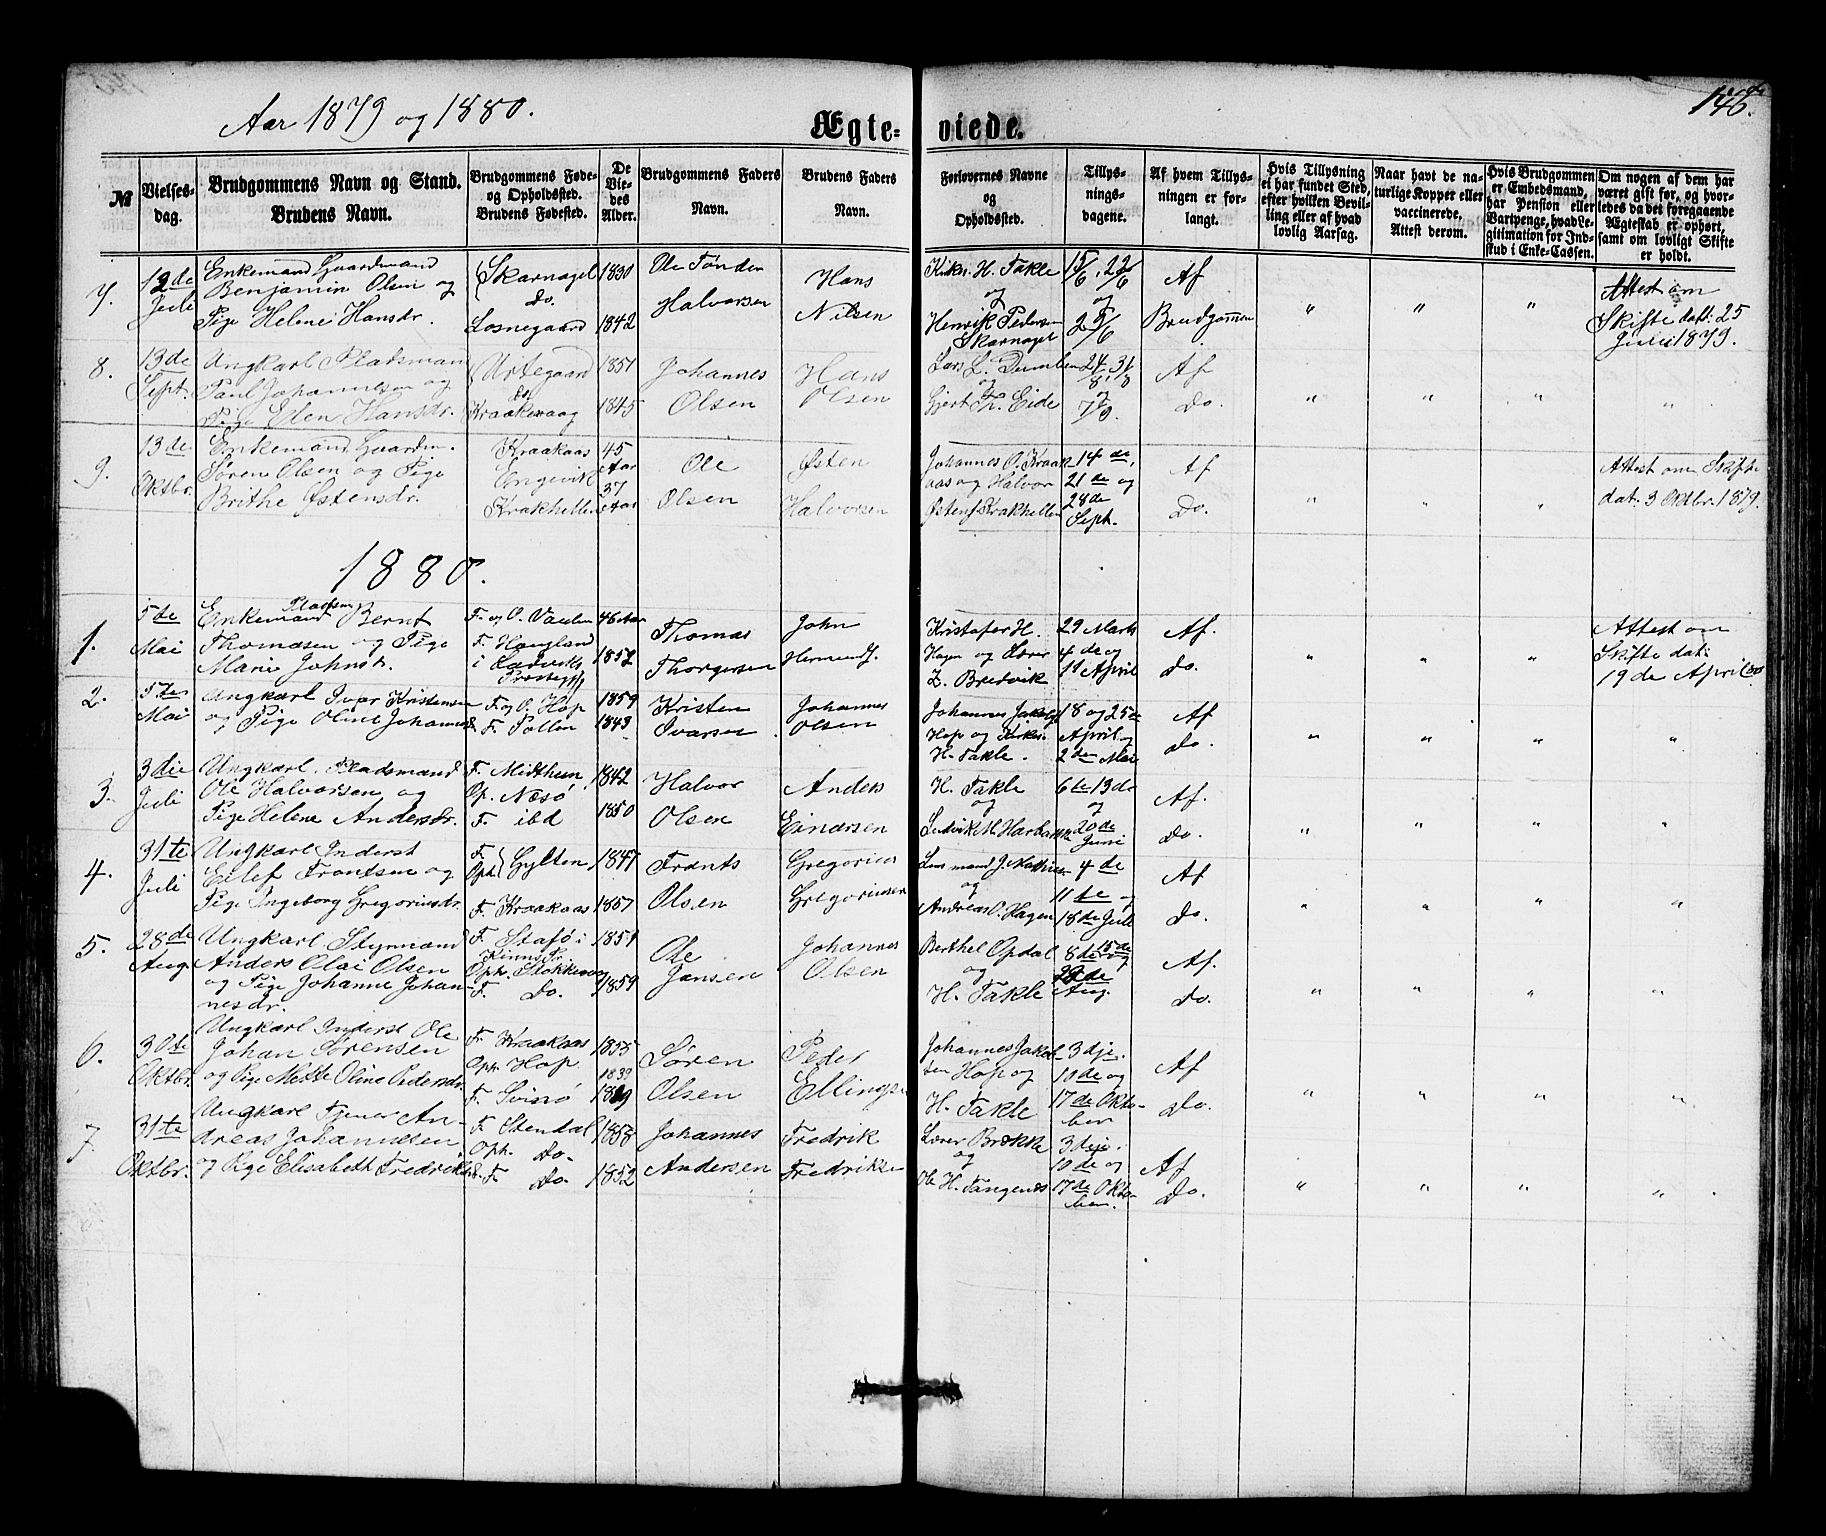 Aar 1879 og 1880.
146.
Ægte= viede.
№
Vielses-
dag.
Brudgommens Navn og Stand.
Brudens Navn.
Brudgommens Føde-
og Opholdssted.
Brudens Fødested.
De
Vie-
des
Alder.
Brudgommens Faders
Navn.
Brudens Faders
Navn.
Forlovernes Navne
og
Opholdssted.
Tillys-
nings-
dagene.
Af hvem Tillys-
ningen er for-
langt.
Hvis Tillysning
ei har fundet Sted,
efter hvilken Bevil-
ling eller af hvad
lovlig Aarsag.
Naar havt de na-
turlige Kopper eller
vaccinerede,
Attest derom.
Hvis Brudgommen
er Embedsmand,
har Pension eller
Vartpenge, hvad Le-
gitimation for Ind-
skud i Enke-Cassen.
Om nogen af dem har
været gift før, og hvor-
ledes da det foregaaende
Ægteskab er ophørt,
samt om lovligt Skifte
er holdt.
7.
12de
Juli
Enkemand Gaardmand
Benjamin Olsen og
Pige Helene Hansdr.
Skarnagel
Do.
Losnegaard
1830
1842
Ole Tønder
Halvorsen
Hans
Nilsen
Kirkes. H. Takle
og
Henrik Pedersen
Skarnagel
15/6, 22/6
og
29/6
Af
Brudgommen
" " "
Attest om
Skifte dat: 25
Juli 1879.
8.
13de
Sept.
Ungkarl Pladsmand
Paul Johannesen og
Pige Elen Hansdr.
Urtegaard
do
Kraakevaag
1851
1845
Johannes
Olsen
Hans
Olsen
Lars L. Dumben
og
Gjert Th. Eide
24/8, 31/8
og
7/9.
Af
Do.
" " " "
9.
13de
Oktbr.
Enkemand Gaardm.
Søren Olsen og Pige
Brithe Østensdr.
Kraakaas
Engevik
Krakhellen
45
Aar
37
Aar
Ole
Olsen
Østen
Halvorsen
Johannes O. Kraak-
aas og Halvor
Østens Krakhellen
14de,
21de og
28de
Sept.
Af
Do.
" " "
Attest om Skifte
dat. 3 Oktbr. 1879.
1880.
1.
5te
Mai
Enkemand Pladsm Bernt
Thomasen og Pige
Marie Johnsdr.
F. og O. Vaulen
F. Haugland
i
46 Aar
1852
Thomas
Thorgersen
John
Kristofer H.
Hagen og Lærer
Z. Bredvik
29 Marts
4de og
11 April
Af.
Do.
" " "
Attest om
Skifte dat:
19de April 80
2.
5te
Mai
Ungkarl Ivar Kristensen
og Pige Oline Johannesd.
F. og O. Hop
F. Pollen
1859
1843
Kristen
Ivarsen
Johannes
Olsen
Johannes Jakobs
Hop og Kirkes.
H. Takle.
18 og 25de
April og
2den Mai
Af
Do.
" " " "
3.
3die
Juli
Ungkarl. Pladsmand
Ole Halvorsen og
Pige Helene Andersdr.
F. Midthun
Op. Næsø
F. ibd
1842
1850
Halvor
Olsen
Anders
Einarsen
H. Takle
og
Ludvik M.
6te 13de
og
20de
Juni
Af.
Do.
" " " "
4.
31te
Juli
Ungkarl Inderst
Ellef Frantsen og
Pige Ingeborg Gregoriusdr.
F.
Oph. Gylten
F. Kraakaas
1847
1857
Frants
Olsen
Gregorius
Gregoriussen
Lensmand J. Mathiesen
og
Andreas O. Hagen
4de
11te og
18de Juli
Af
Do.
" " " "
5.
28de
Aug.
Ungkarl Styrmand
Anders Olai Olsen
og Pige Johanne Johan-
nesdr.
F. Stafø i
Kinns Pr.
Oph. Stokkevaag
F. Do.
1851
1859
Ole
Jansen
Johannes
Olsen
Berthel Opdal
og
H. Takle
8de 15de
og
22de
Aug.
Af.
Do.
" " " "
6.
30te
Oktbr.
Ungkarl Inderst Ole
Johan Sørensen
og Pige Mette Oline Pedersdr.
F. Kraakaas
Oph. Hop
F. Svinø
1855
1839
Søren
Olsen
Peder
Ellingsen
Johannes Jakob-
sen Hop og
H. Takle
3dje.
10de og
17de Okto-
ber
Af
Do.
" " " "
7.
31te
Oktbr.
Ungkarl Tjener An-
dreas Johannesen
og Pige Elisabeth Fredriksd.
F. Stendal
Oph. Do.
F. Do.
1858
1852
Johannes
Andersen
Fredrik
Fredriksen
Lærer Brække
og
Ole H. Tangenes
3dje.
10de og
17de Okto-
ber.
Af
Do.
" " " "